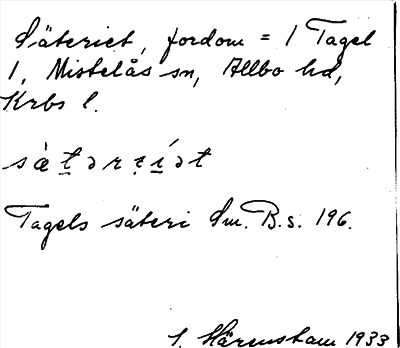 Säteriet, fordom = 1 Tagel
1, Mistelås sn, Allbo hd,
Krbs l.
Tagels säteri Sm. B. s. 196.
J. Härenstam 1933